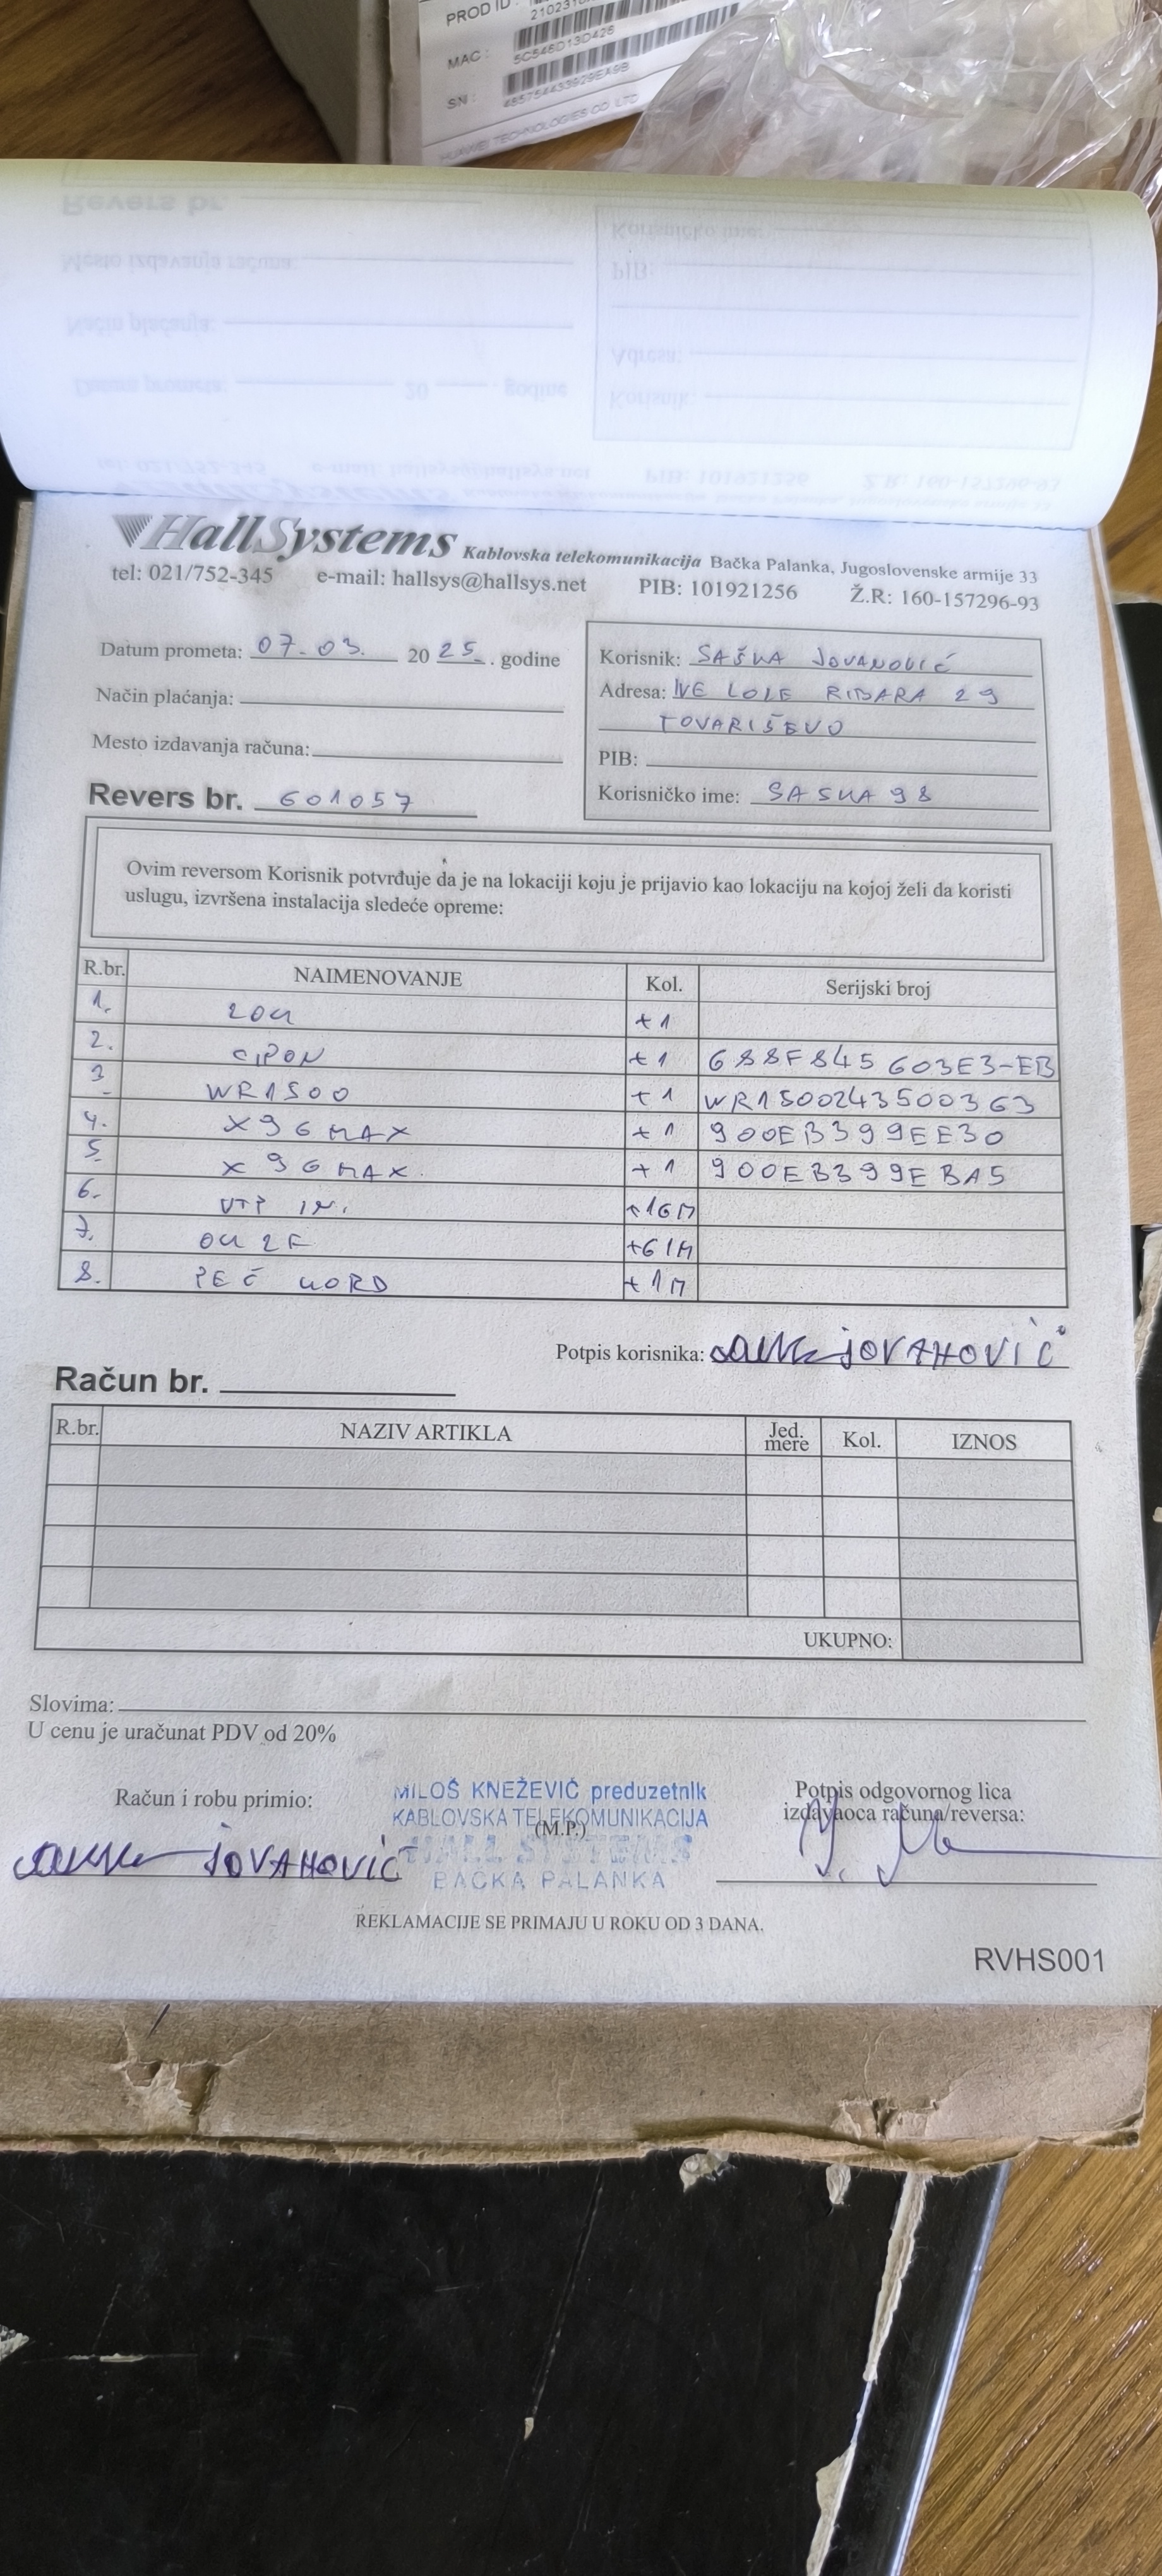 PROD ID :
MAC : 5C546D13D426
SN : 485754433929EA9B
HUAWEI TECHNOLOGIES CO. LTD
HallSystems Kablovska telekomunikacija Bačka Palanka, Jugoslovenske armije 33
tel: 021/752-345 e-mail: hallsys@hallsys.net PIB: 101921256 Ž.R: 160-157296-93
Datum prometa: 07.03. 2025. godine
Način plaćanja:
Mesto izdavanja računa:
Revers br. 601057
Korisnik: SAŠKA JOVANOVIĆ
Adresa: IVE LOLE RIBARA 29
TOVARIŠEVO
PIB:
Korisničko ime: SASKA98
Ovim reversom Korisnik potvrđuje da je na lokaciji koju je prijavio kao lokaciju na kojoj želi da koristi
uslugu, izvršena instalacija sledeće opreme:
R.br. NAIMENOVANJE Kol. Serijski broj
1. ZOK +1
2. GPON +1 688F845603E3-EB
3. WR1500 +1 WR1500243500363
4. X96 MAX +1 900EB399EE30
5. X96 MAX. +1 900EB399EBA5
6. UTP IN. +16M
7. OK 2F +61M
8. PEČ KORD +1M
Potpis korisnika: JOVANOVIĆ
Račun br.
R.br. NAZIV ARTIKLA Jed. mere Kol. IZNOS
UKUPNO:
Slovima:
U cenu je uračunat PDV od 20%
Račun i robu primio: JOVANOVIĆ
MILOŠ KNEŽEVIĆ preduzetnik
KABLOVSKA TELEKOMUNIKACIJA
(M.P.)
HALL SYSTEMS
BAČKA PALANKA
Potpis odgovornog lica
izdavaoca računa/reversa:
REKLAMACIJE SE PRIMAJU U ROKU OD 3 DANA.
RVHS001